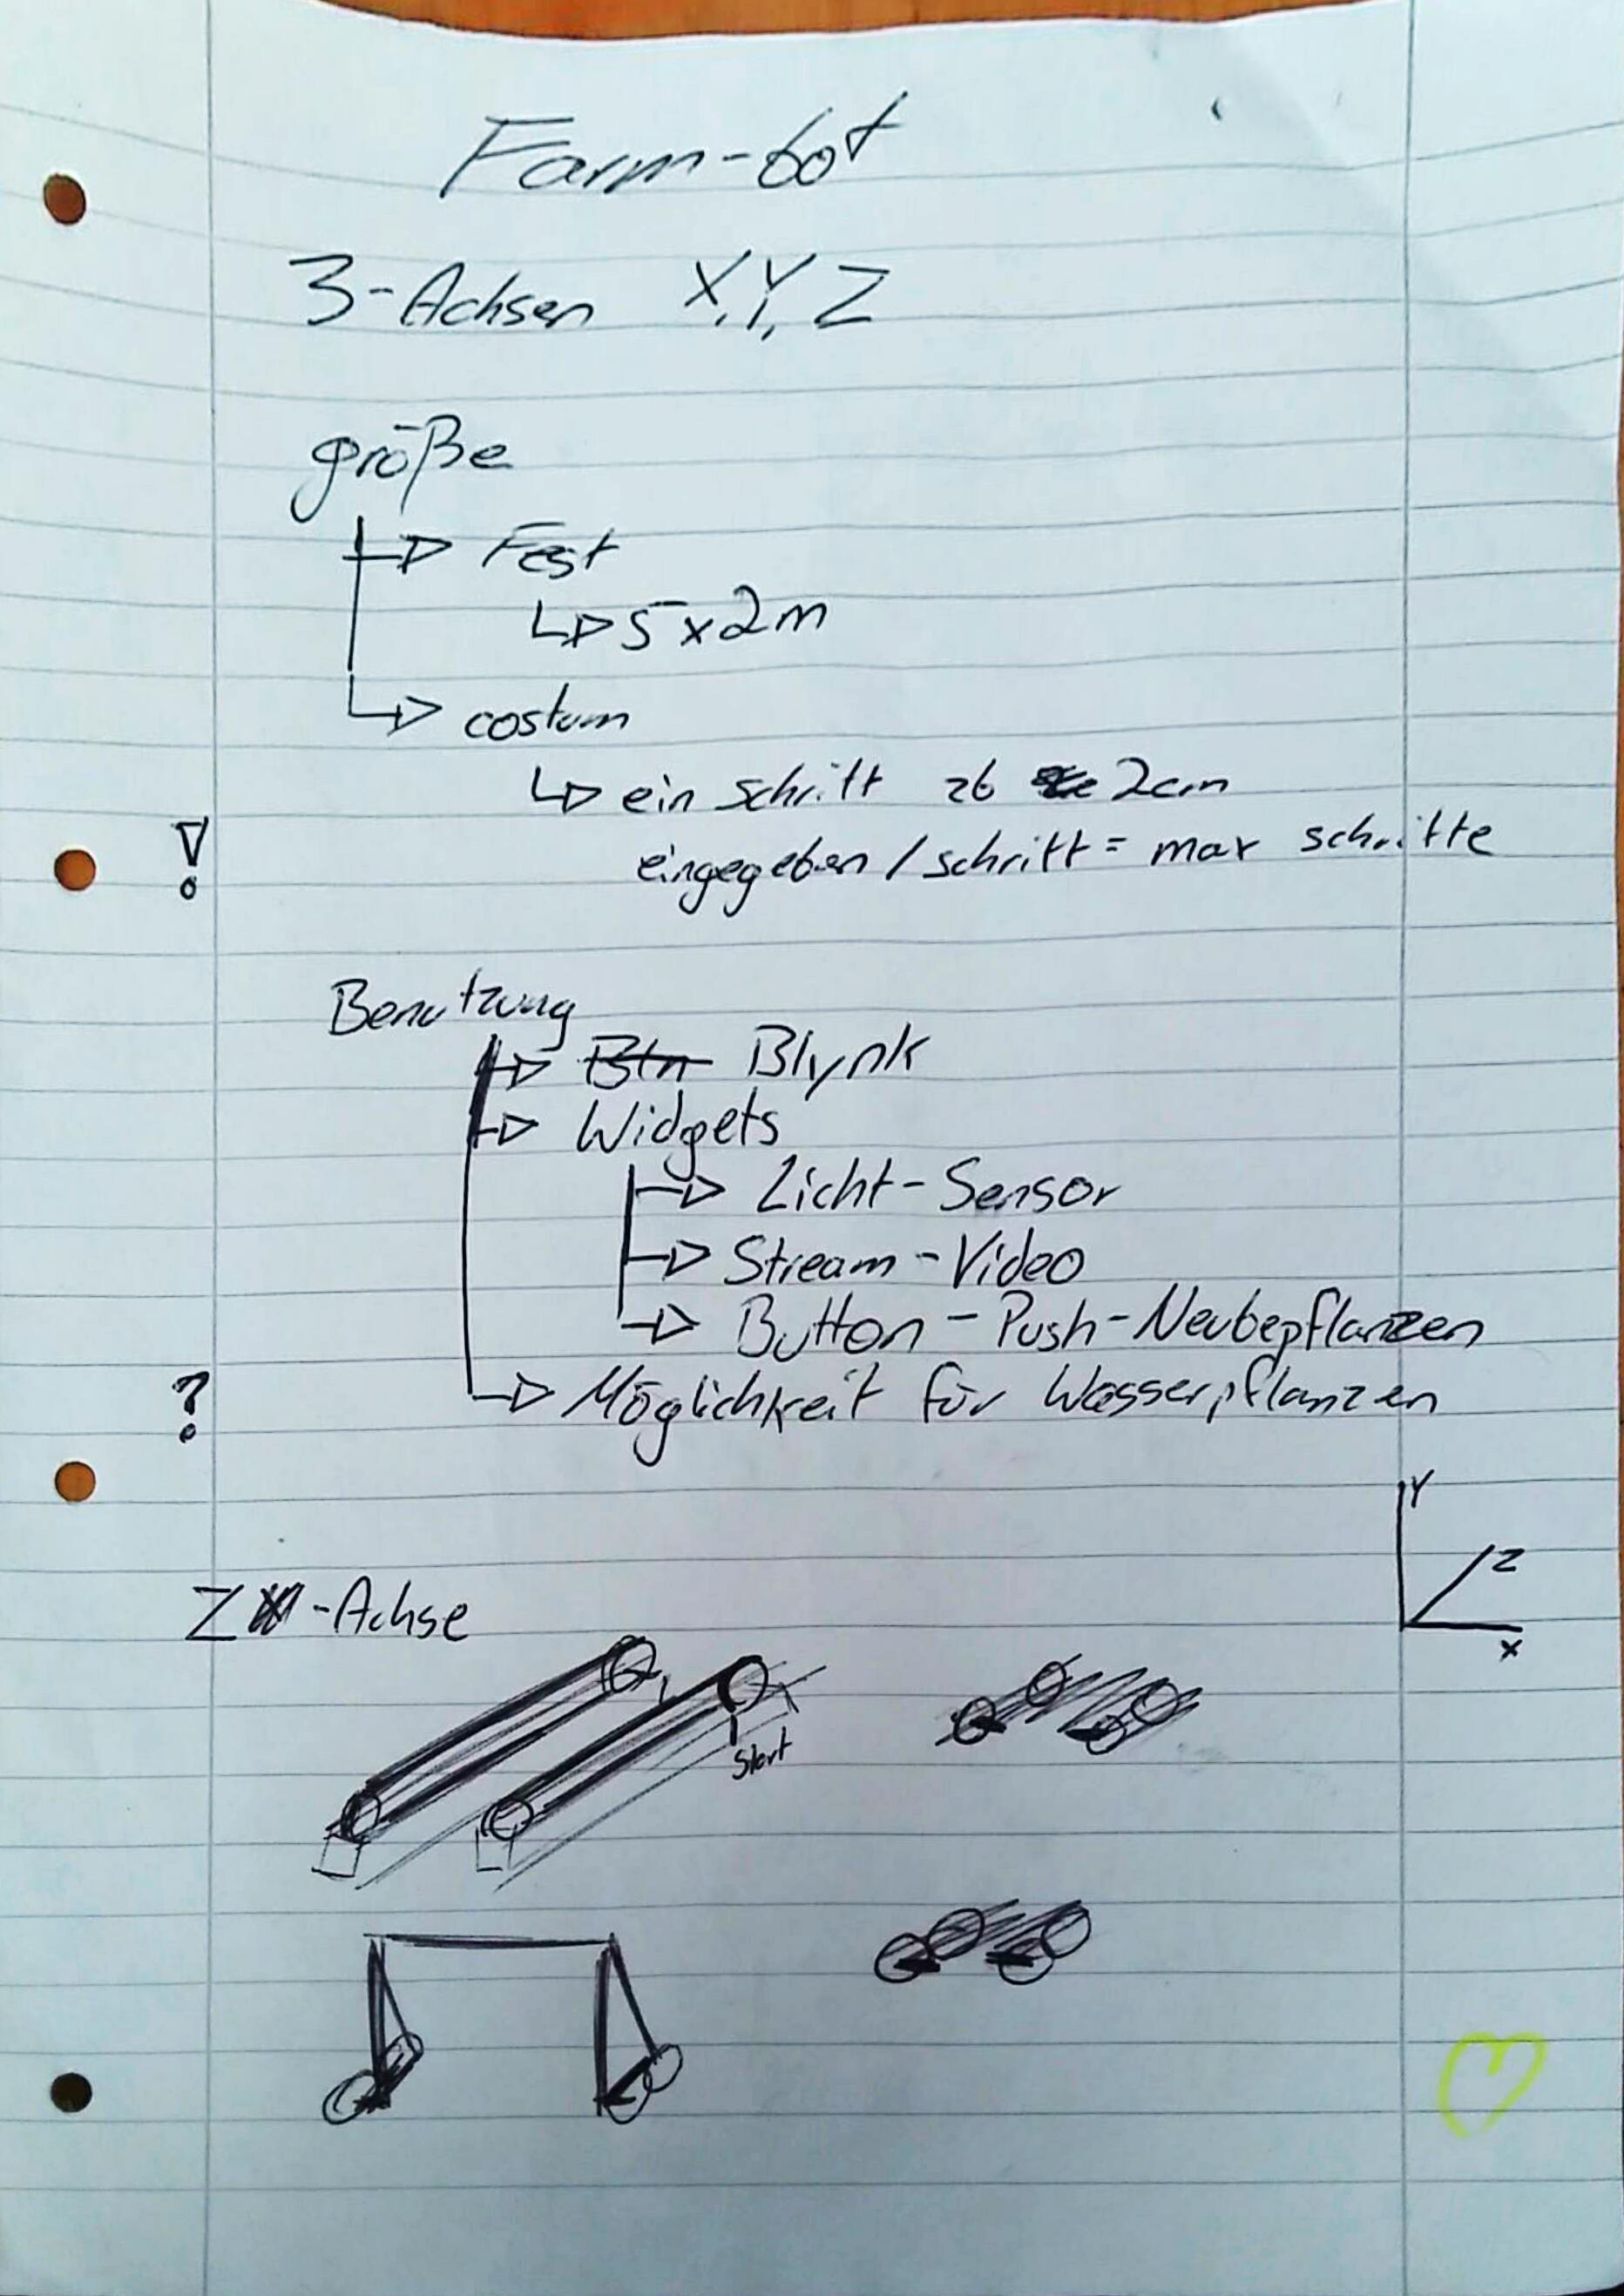 Farm-bot
3-Achsen X,Y,Z
größe
Fest
5x2m
costum
ein schritt zb 2cm
!
eingegeben / schritt = max schritte
Benutzung
Btn Blynk
Widgets
Licht-Sensor
Stream-Video
Button-Push-Neubepflanzen
?
Möglichkeit für Wasserpflanzen
Y
Z
X
Z-Achse
Start